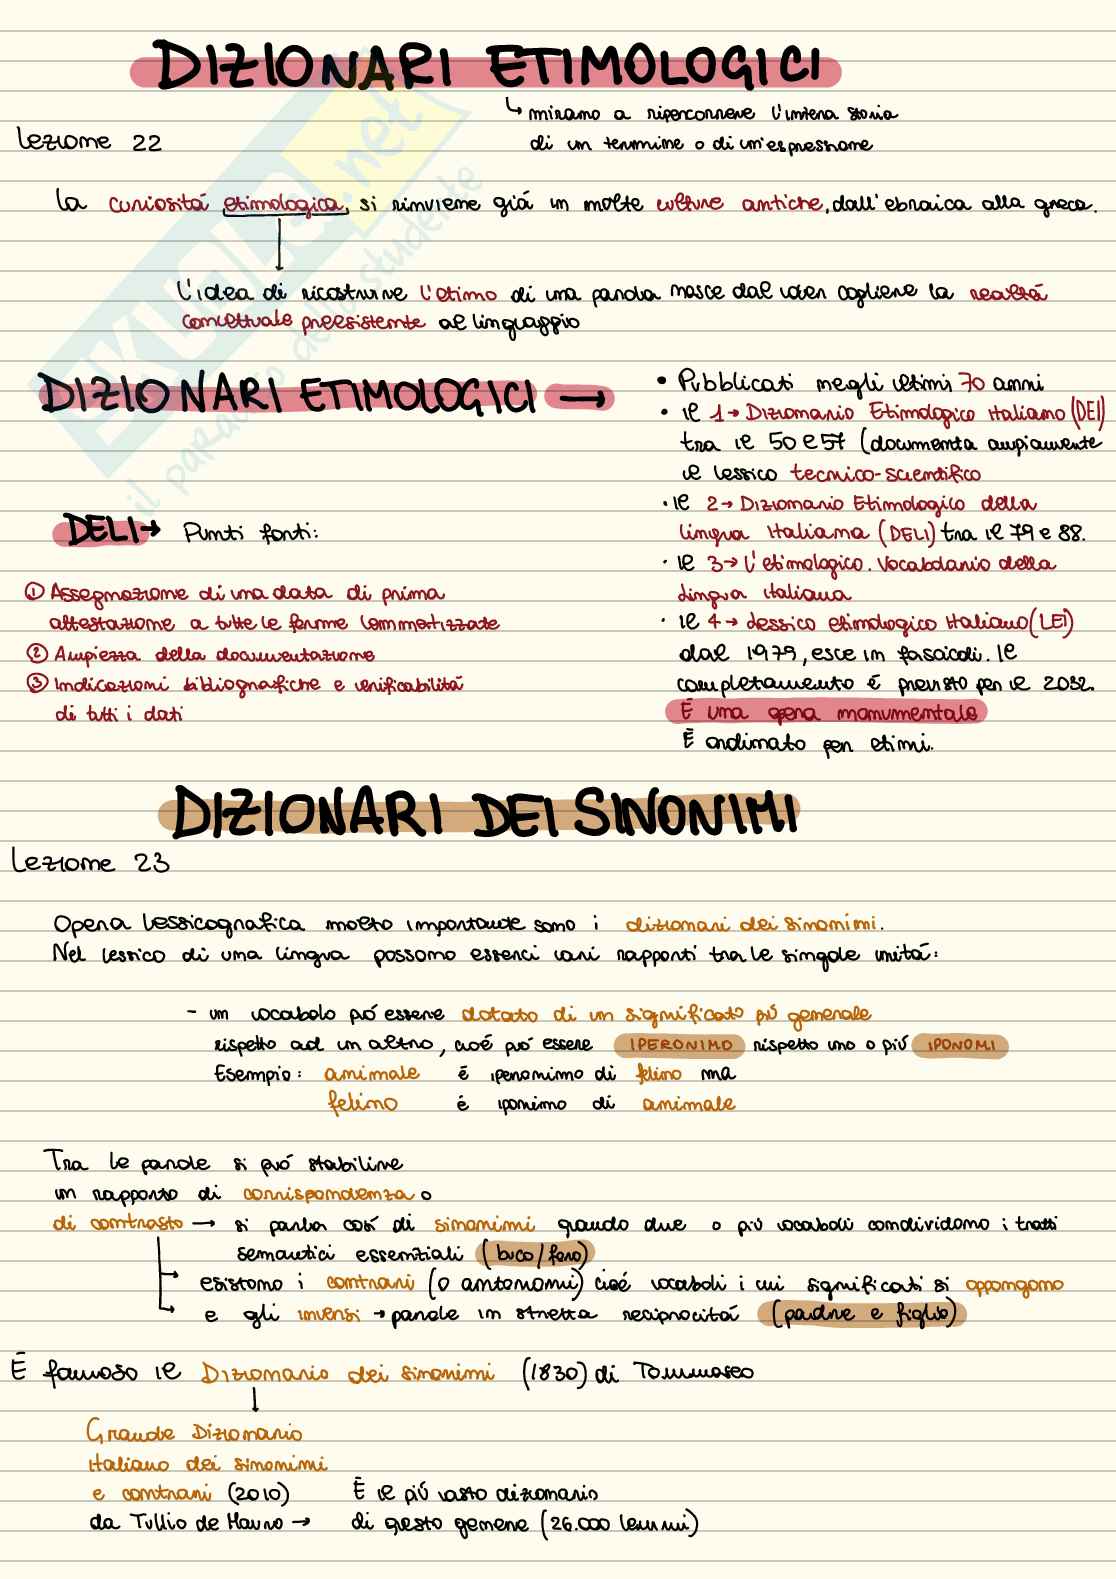 DIZIONARI ETIMOLOGICI
↳ mirano a ripercorrere l'intera storia
di un termine o di un'espressione
Lezione 22
La curiositá etimologica, si rinviene giá in molte culture antiche, dall'ebraica alla greca.
L'idea di ricostruire l'etimo di una parola nasce dal voler cogliere la realtá
concettuale preesistente al linguaggio
DIZIONARI ETIMOLOGICI →
• Pubblicati negli ultimi 70 anni
• il 1→ Dizionario Etimologico Italiano (DEI)
tra il 50 e 57 (documenta ampiamente
il lessico tecnico-scientifico
• il 2→ Dizionario Etimologico della
lingua Italiana (DELI) tra il 79 e 88.
• il 3→ L'etimologico. Vocabolario della
lingua italiana
• il 4→ Lessico etimologico Italiano (LEI)
dal 1979, esce in fascicoli. Il
completamento é previsto per il 2032.
É una opera monumentale
É ordinato per etimi.
DELI→ Punti forti:
① Assegnazione di una data di prima
attestazione a tutte le forme lemmatizzate
② Ampiezza della documentazione
③ Indicazioni bibliografiche e verificabilitá
di tutti i dati
DIZIONARI DEI SINONIMI
Lezione 23
Opera lessicografica molto importante sono i dizionari dei sinonimi.
Nel lessico di una lingua possono esserci vari rapporti tra le singole unitá:
- un vocabolo puó essere dotato di un significato piú generale
rispetto ad un altro, cioé puó essere IPERONIMO rispetto uno o piú IPONOMI
Esempio: animale é iperonimo di felino ma
felino é iponimo di animale
Tra le parole si puó stabilire
un rapporto di corrispondenza o
di contrasto → si parla cosí di sinonimi quando due o piú vocaboli condividono i tratti
semantici essenziali (buco/foro)
esistono i contrari (o antonomi) cioé vocaboli i cui significati si oppongono
e gli inversi → parole in stretta reciprocitá (padre e figlio)
É famoso il Dizionario dei sinonimi (1830) di Tommaseo
Grande Dizionario
Italiano dei sinonimi
e contrari (2010) É il piú vasto dizionario
da Tullio de Mauro → di questo genere (26.000 lemmi)
SKUOLA.net
il paradiso dello studente